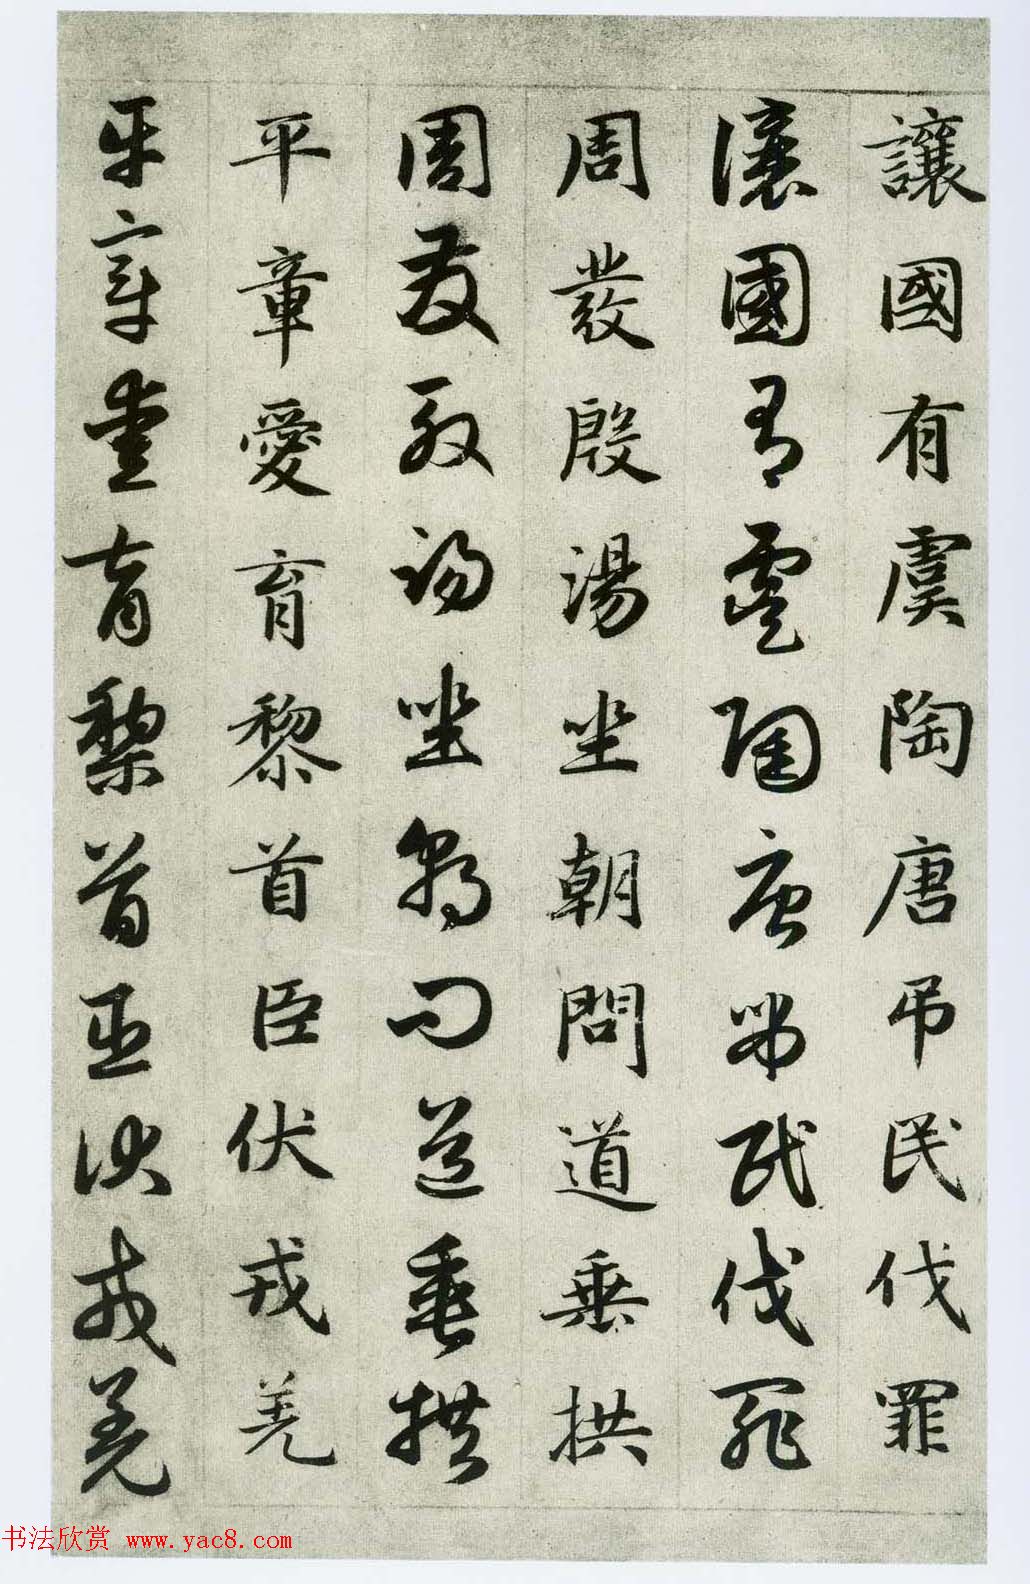 讓國有虞陶唐吊民伐罪
讓國有虞陶唐弔民伐罪
周發殷湯坐朝問道垂拱
周發殷湯坐朝問道垂拱
平章愛育黎首臣伏戎羌
平章愛育黎首臣伏戎羌
书法欣赏 www.yac8.com